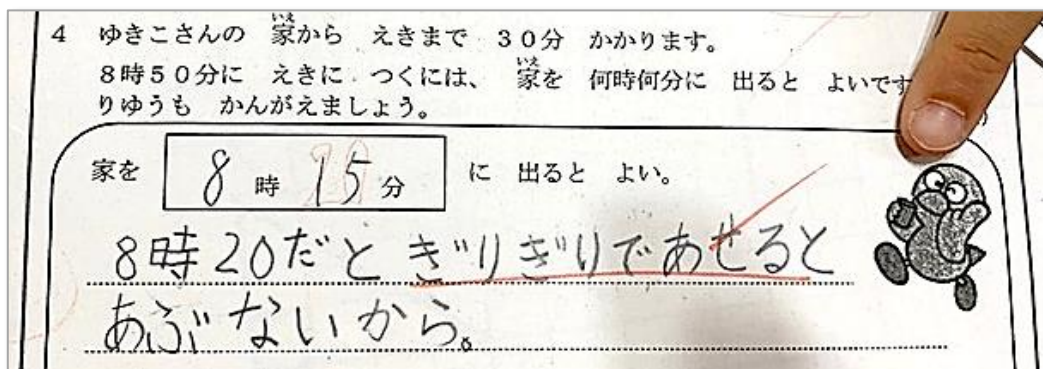 4 ゆきこさんの 家から えきまで 30分 かかります。
いえ
8時50分に えきに つくには、 家を 何時何分に 出ると よいです
いえ
りゆうも かんがえましょう。
家を 8時15分 に 出ると よい。
8時20だとぎりぎりであせると
あぶないから。